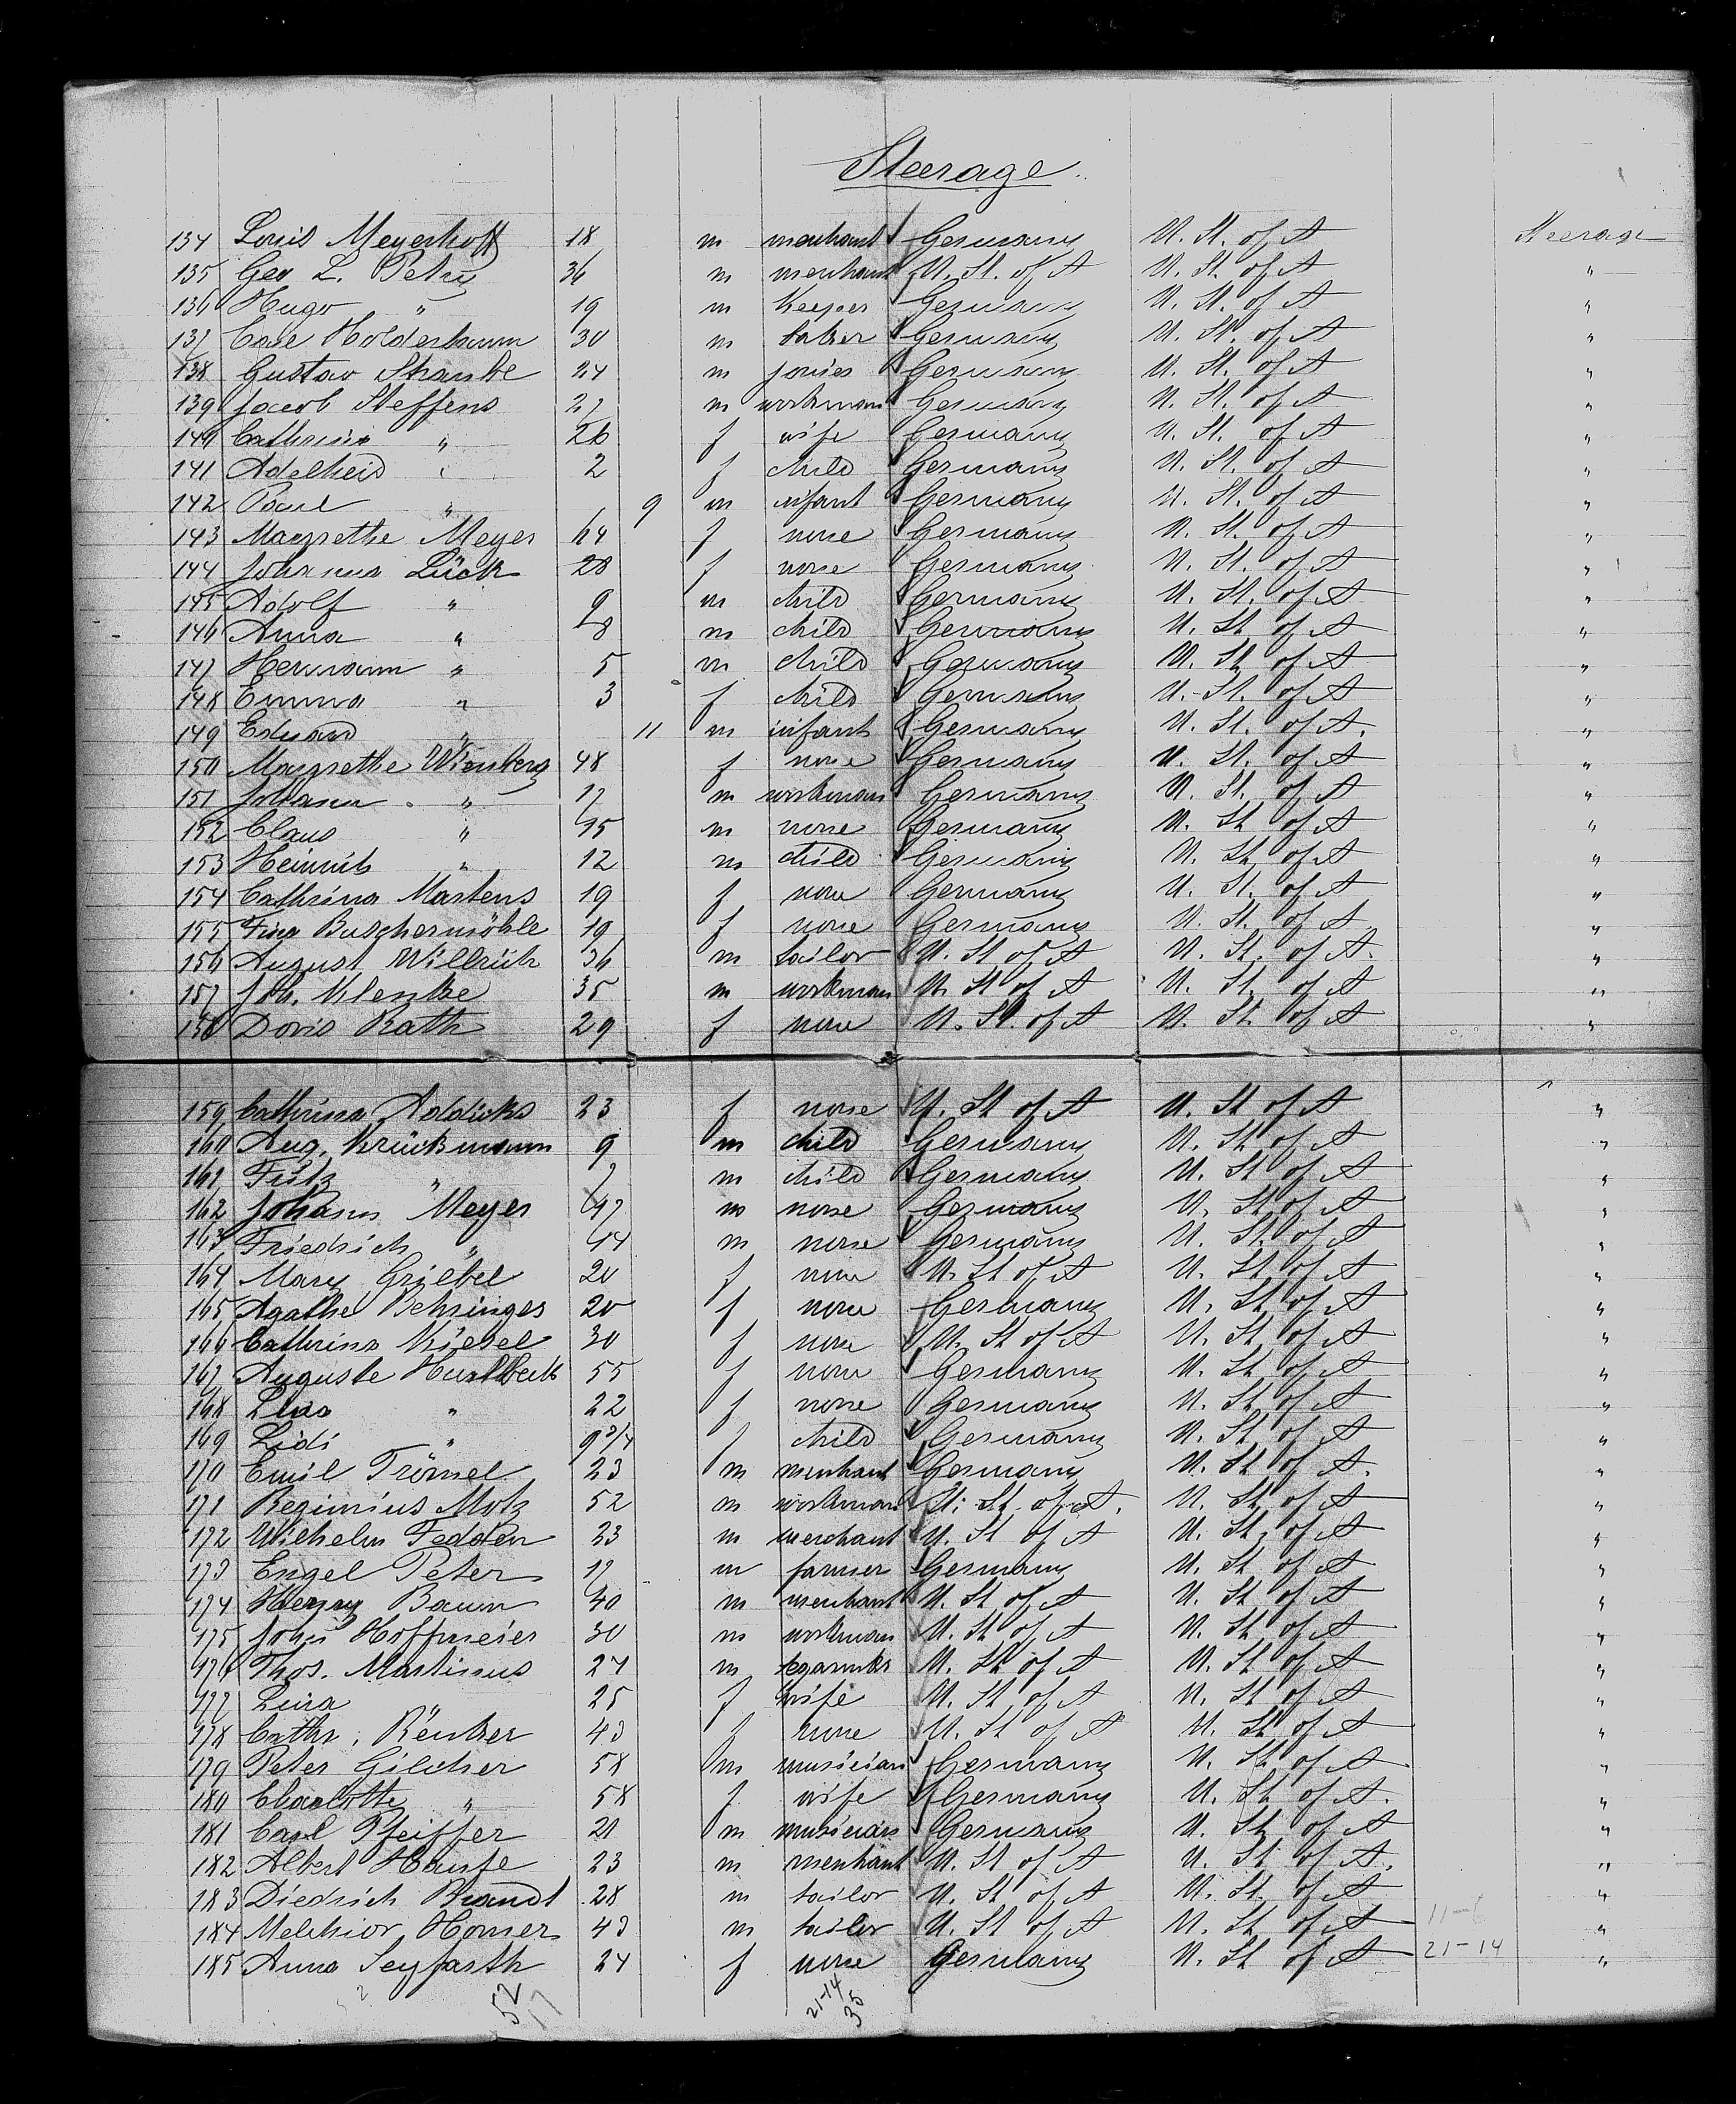 Steerage
134 Louis Meyerhoff 18 m merchant Germany U. St. of A Steerage
135 Geo L. Petry 36 m merchant U. St. of A U. St. of A "
136 Hugo " 19 m Keeper Germany U. St. of A "
137 Carl Holderbaum 30 m baker Germany U. St. of A "
138 Gustav 24 m Germany U. St. of A "
139 Jacob Steffens 27 m workman Germany U. St. of A "
140 Cathrina " 26 f wife Germany U. St. of A "
141 Adelheid " 2 f child Germany U. St. of A "
142 Paul " 9 m infant Germany U. St. of A "
143 Margrethe Meyer 64 f none Germany U. St. of A "
144 Johanna Lück 28 f none Germany U. St. of A "
145 Adolf " 9 m child Germany U. St. of A "
146 Anna " 8 m child Germany U. St of A "
147 Hermann " 5 m child Germany U. St of A "
148 Emma " 3 f child Germany U. St. of A "
149 Eduard " 11 m infant Germany U. St. of A. "
150 Margrethe Wienberg 48 f none Germany U. St. of A "
151 Johann " 17 m workman Germany U. St. of A "
152 Claus " 15 m none Germany U. St of A "
153 Heinrich " 12 m child Germany U. St of A "
154 Cathrina Martens 19 f none Germany U. St. of A "
155 Fina Buschermöhle 19 f none Germany U. St. of A "
156 August Willrich 36 m tailor U. St of A U. St. of A. "
157 Joh. Klenke 35 m workman U. St of A U. St. of A "
158 Doris Rath 29 f none U. St. of A U. St of A "
159 Cathrina Addicks 23 f none U. St of A U. St of A "
160 Aug. Krückmann 9 m child Germany U. St of A "
161 Fritz " 7 m child Germany U. St of A "
162 Johann Meyer 47 m none Germany U. St of A "
163 Friedrich " 44 m none Germany U. St. of A "
164 Mary Griebel 20 f none U. St of A U. St of A "
165 Agathe Behringer 20 f none Germany U. St of A "
166 Cathrina Kiebel 30 f none U. St of A U. St of A "
167 Auguste 55 f none Germany U. St of A "
168 " 22 f none Germany U. St of A "
169 Lidi " 9 3/4 f child Germany U. St of A "
170 Emil Trömel 23 m merchant Germany U. St of A. "
171 Motz 52 m workman U. St. of A. U. St of A "
172 Wilhelm Fedden 33 m merchant U. St of A U. St. of A "
173 Engel Peter 17 m farmer Germany U. St of A "
174 Henry Baum 40 m merchant U. St of A U. St of A "
175 John Hoffmeier 30 m workman U. St of A U. St of A "
176 Thos. Martinus 27 m U. St of A U. St of A "
177 Lina " 25 f wife U. St of A U. St of A "
178 Cathr. Renker 43 f none U. St of A U. St of A "
179 Peter Gilcher 58 m musician Germany U. St of A "
180 Charlotte " 58 f wife Germany U. St of A. "
181 Carl Pfeiffer 21 m musician Germany U. St of A "
182 Albert Haufe 23 m merchant U. St of A U. St of A. "
183 Diedrich Brandt 28 m tailor U. St of A U. St. of A "
184 Melchior Homer 43 m tailor U. St of A U. St of A 11-6 "
185 Anna Seyfarth 24 f none Germany U. St of A 21-14 "
52
17
21-14
35